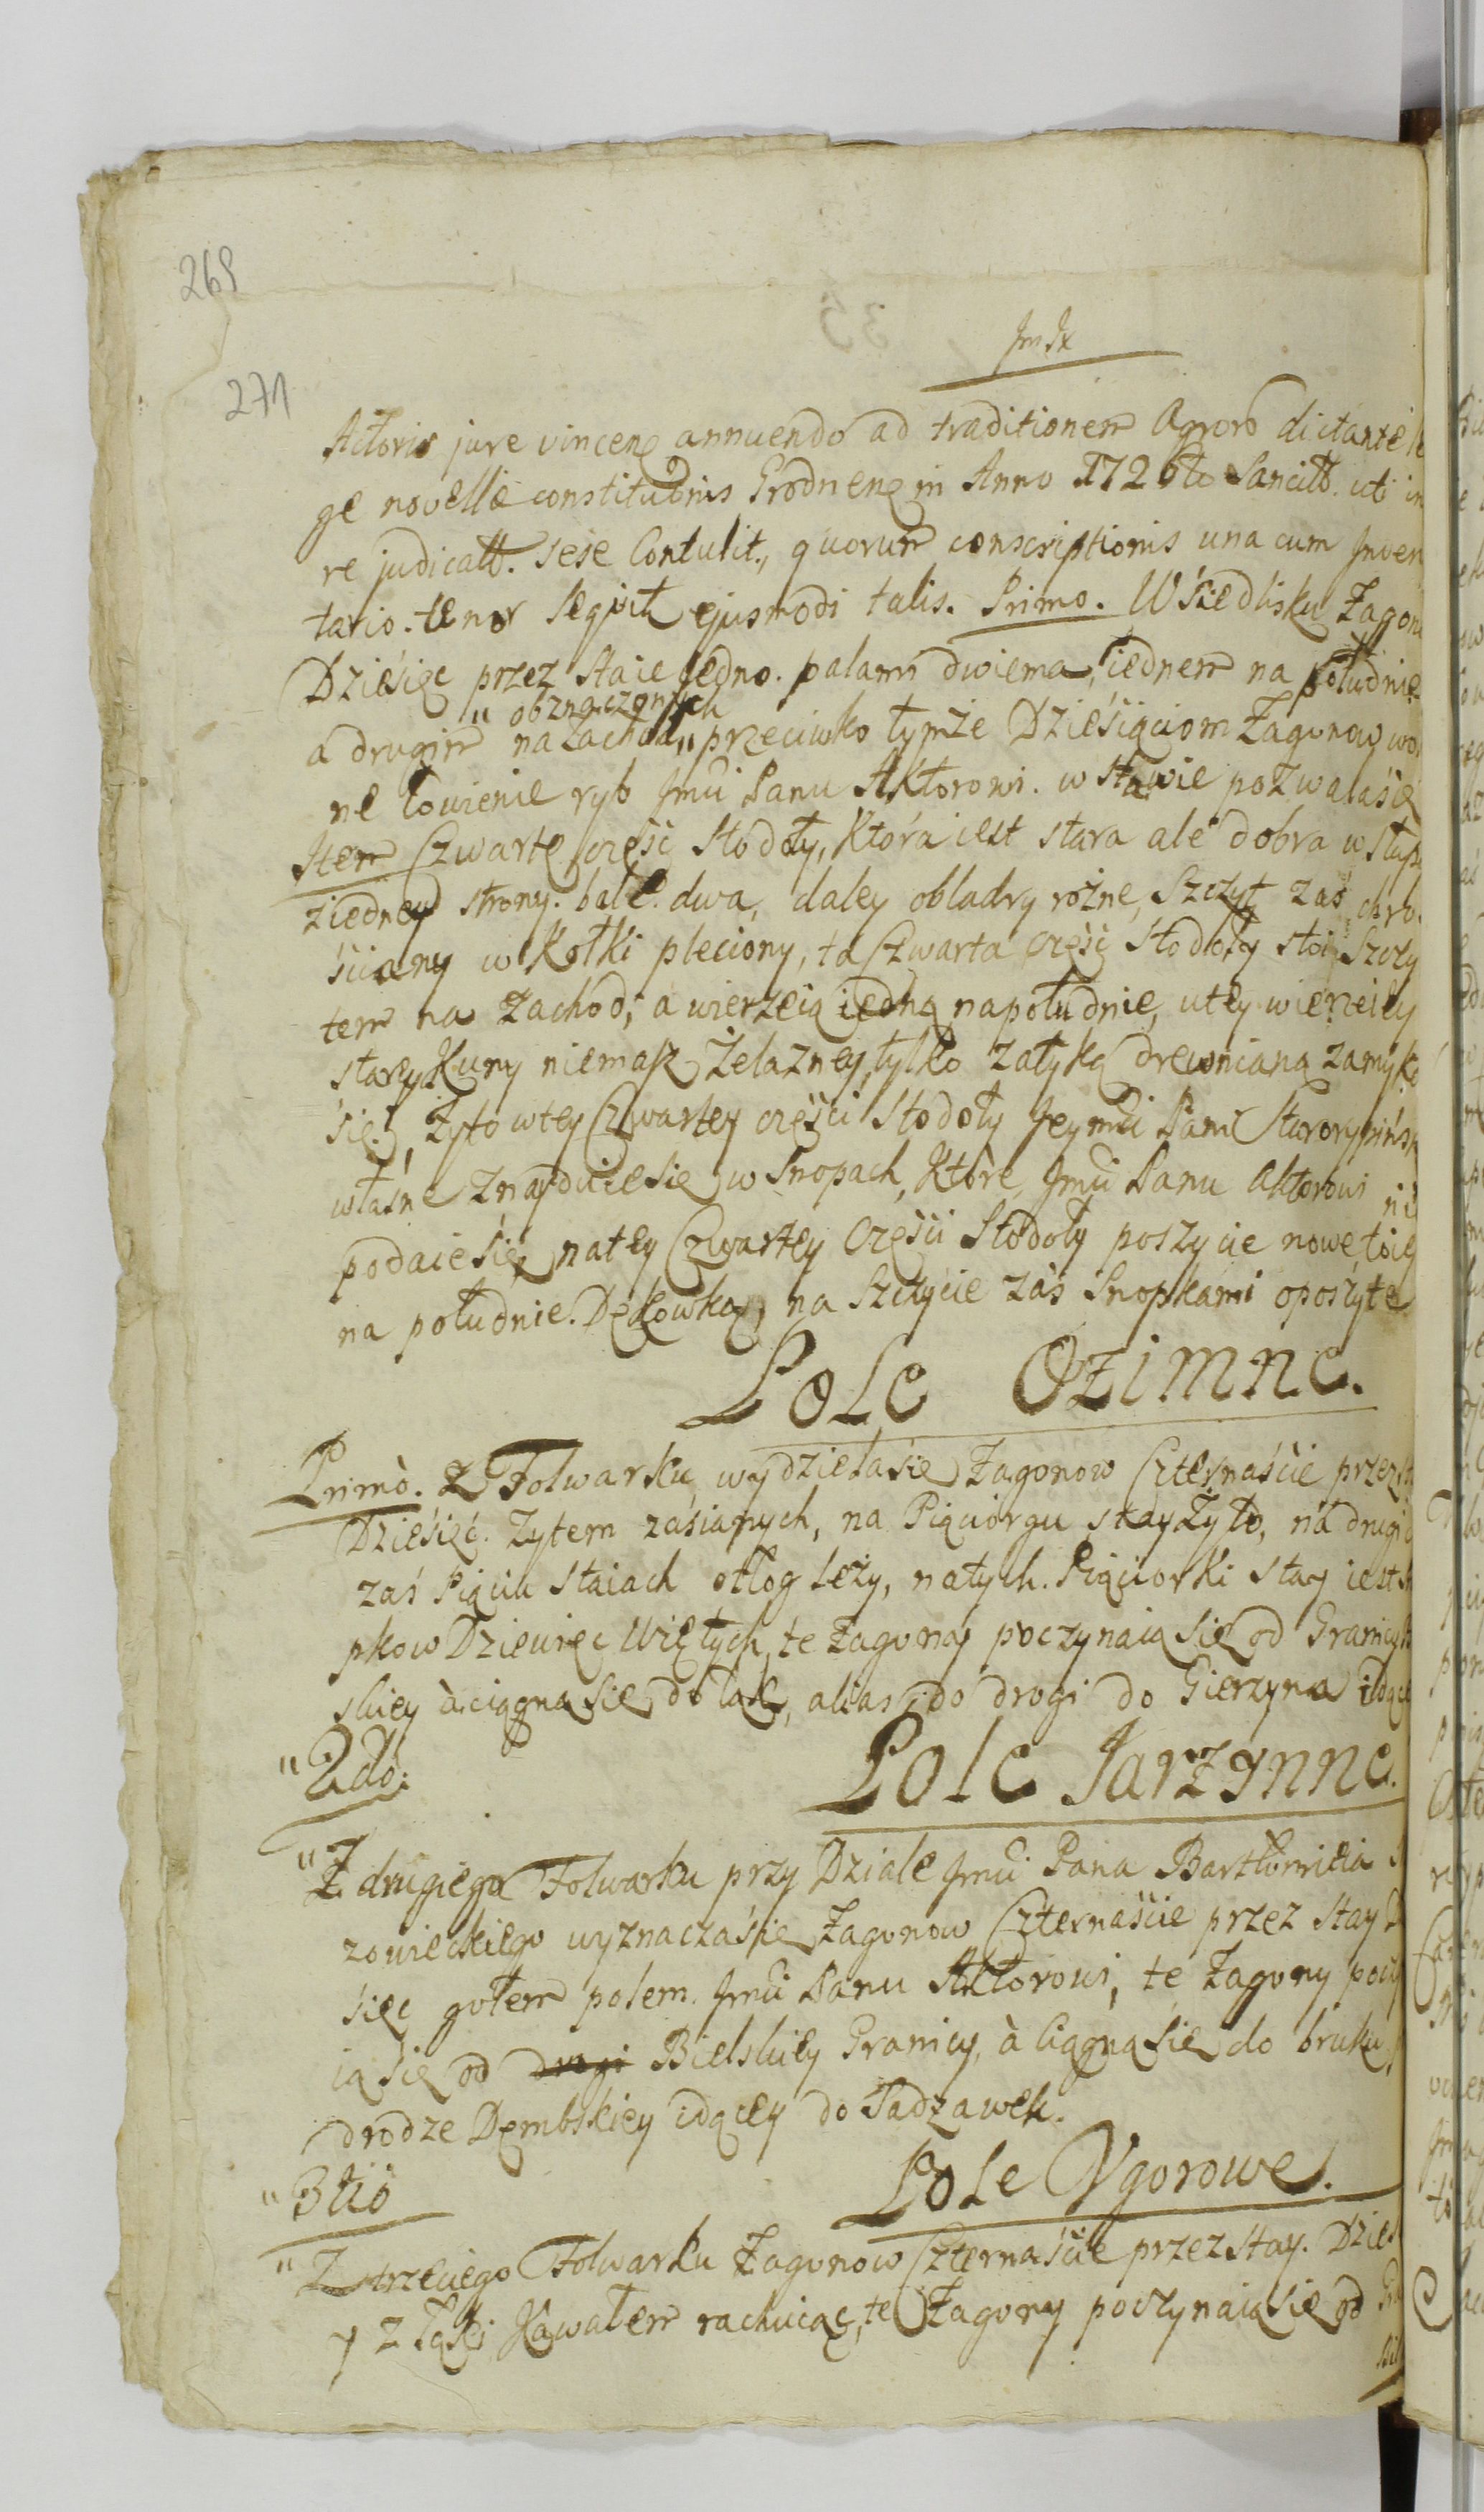 269
271
Actoris jure vincen annuendo ad traditionem Agroro dictante le
ge novellæ constitutonis Grodnen in Anno 1726to Sancitt. uti in
re judicatt. sese Contulit, quorum conscriptionis una cum Inven
tario. tenor sequit ejusmodi talis. Primo. W Siedlisku Zagon
Dziesięc przez staie iedno. palami dwiema, iednem na południe
" obznaczonych
a drugim na Zachod " przeciwko tymże Dziesiąciom Zagonow wol
ne łowienie ryb Jmći Panu Aktorowi. w stawie pozwala się
Item Czwartę część Stodoły, Ktora iest stara ale dobra w słup
ziedney strony. bale dwa, daley obladry rożne, Szczyt zas chro
sciany w Kołki pleciony, ta Czwarta część Stodoły stoi Szczy
tem na Zachod, a wierzeią iedną napołudnie, u tey wierzeiey
starey Kuny niemasz Żelazney, tylko zatyką drewnianą zamyka
się, Zyto w tey Czwartey części Stodoły Jeymći Pani Starorypinsk
własne znayduie się w Snopach, Ktore Jmći Panu Aktorowi ni
podaie się, natey Czwartey Części Stodoły poszycie nowe
na południe. Dekowka, na Szczycie zas Snopkami oposzyte
Pole Ozimne.
Primo. Z Folwarku wydziela sie Zagonow Czternascie przez st
Dziesięć. Zytem zasianych, na Piąciorgu stay Zyto, na drugi
zaś Piąciu staiach otłog leży, natych. Piąciorki stay iest
pkow Dziewięc Więtych, te Zagony poczynaią się od Granicy
skiey à ciągną się do łąk, alias do drogi do Gierzyna idąc
" 2do:
Pole Jarzynne.
" Z drugiego Folwarku przy Dziale Jmći Pana Bartłomieia
zowieckiego wyznacza sie Zagonow Czternascie przez stay
sięc gołem polem. Jmći Panu Aktorowi, te Zagony pocz
ią się od drogi Bielskiey Granicy, à ciągną się do bruku
drodze Dembskiey idącey do Sadzawek.
" 3tio
Pole Vgorowe.
" Z trzeciego Folwarku Zagonow Czternascie przez stay. Dzies
y z łąki Kawałem rachuiąc, te Zagony poczynaią się od